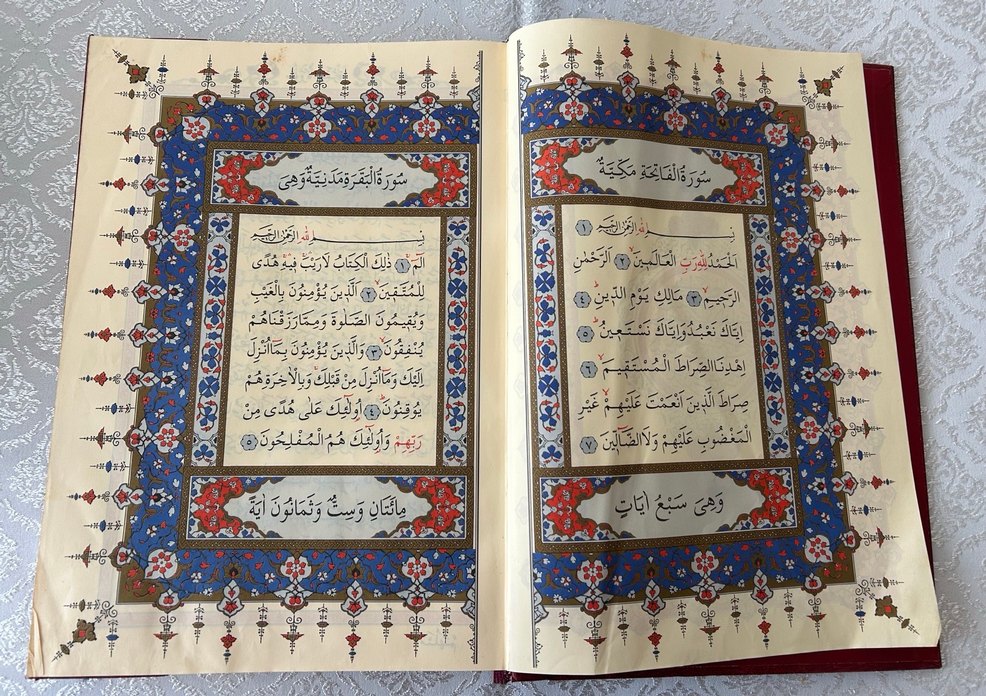 سُورَةُ الْفَاتِحَةِ مَكِّيَّةٌ
بِسْمِ اللّٰهِ الرَّحْمٰنِ الرَّحِيمِ ١
اَلْحَمْدُ لِلّٰهِ رَبِّ الْعَالَمِينَ ٢ اَلرَّحْمٰنِ
الرَّحِيمِ ٣ مَالِكِ يَوْمِ الدِّينِ ٤
اِيَّاكَ نَعْبُدُ وَاِيَّاكَ نَسْتَعِينُ ٥
اِهْدِنَا الصِّرَاطَ الْمُسْتَقِيمَ ٦
صِرَاطَ الَّذِينَ اَنْعَمْتَ عَلَيْهِمْ غَيْرِ
الْمَغْضُوبِ عَلَيْهِمْ وَلَا الضَّالِّينَ ٧
وَهِىَ سَبْعُ اٰيَاتٍ
سُورَةُ الْبَقَرَةِ مَدَنِيَّةٌ وَهِىَ
بِسْمِ اللّٰهِ الرَّحْمٰنِ الرَّحِيمِ
الٓمٓ ١ ذٰلِكَ الْكِتَابُ لَا رَيْبَ فِيهِ هُدًى
لِلْمُتَّقِينَ ٢ اَلَّذِينَ يُؤْمِنُونَ بِالْغَيْبِ
وَيُقِيمُونَ الصَّلٰوةَ وَمِمَّا رَزَقْنَاهُمْ
يُنْفِقُونَ ٣ وَالَّذِينَ يُؤْمِنُونَ بِمَٓا اُنْزِلَ
اِلَيْكَ وَمَٓا اُنْزِلَ مِنْ قَبْلِكَ وَبِالْاٰخِرَةِ هُمْ
يُوقِنُونَ ٤ اُولٰٓئِكَ عَلٰى هُدًى مِنْ
رَبِّهِمْ وَاُولٰٓئِكَ هُمُ الْمُفْلِحُونَ ٥
مِائَتَانِ وَسِتٌّ وَثَمَانُونَ اٰيَةً